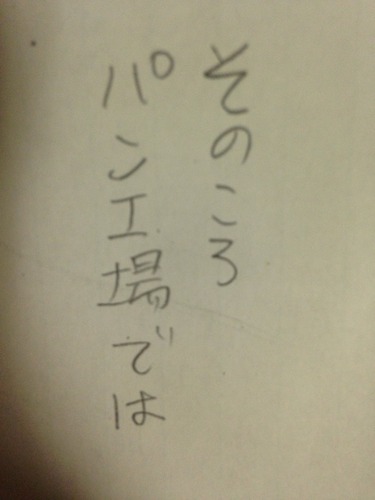 そのころ
パン工場では